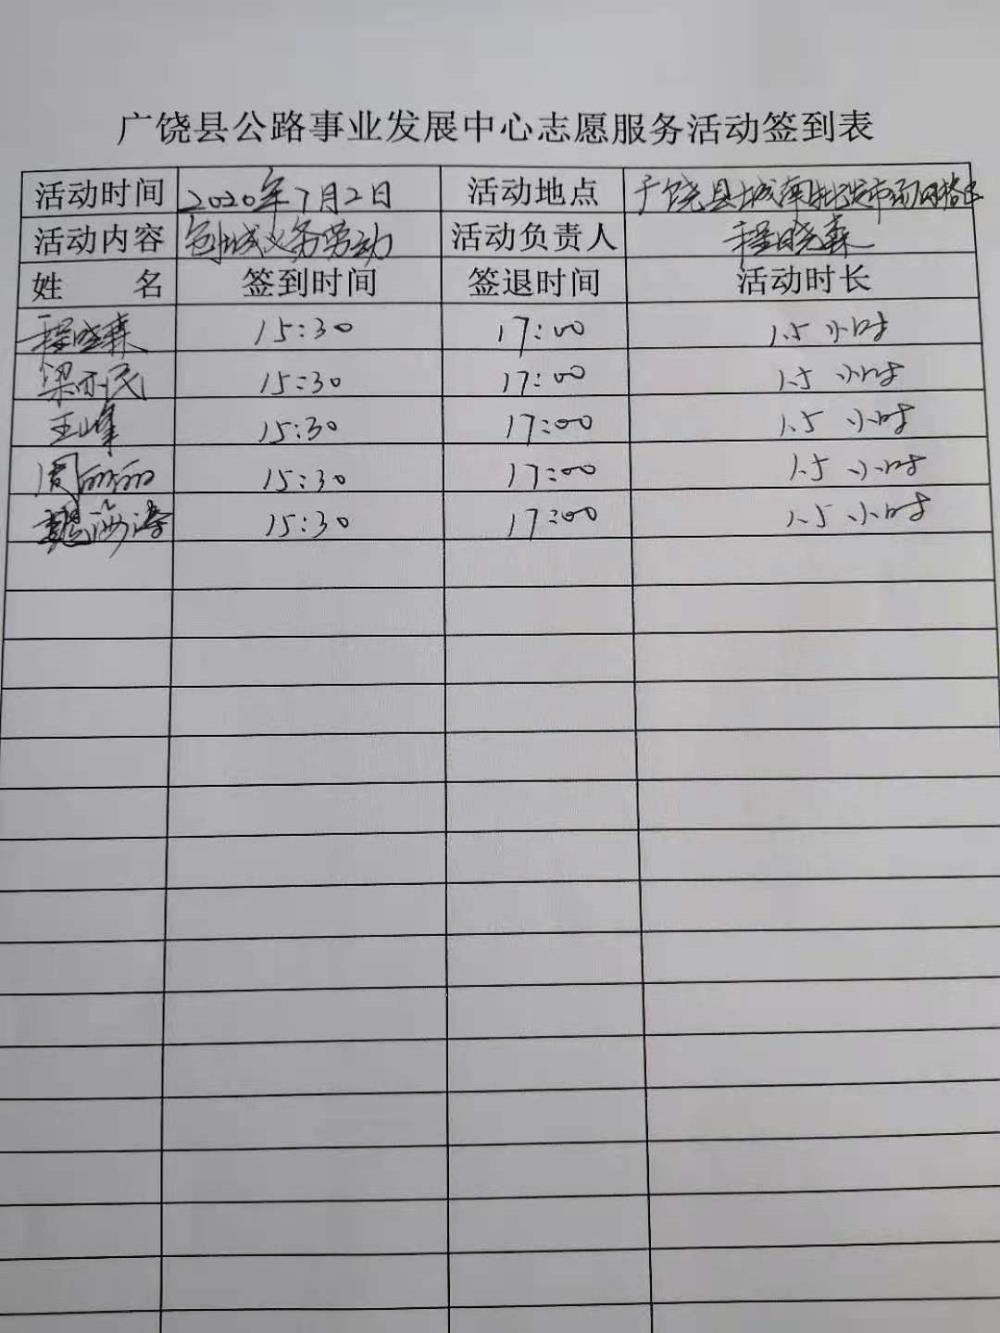 广饶县公路事业发展中心志愿服务活动签到表
活动时间 2020年7月2日 活动地点 广饶县城南批发市场网格区
活动内容 创城义务劳动 活动负责人 程晓森
姓 名 签到时间 签退时间 活动时长
程晓森 15:30 17:00 1.5小时
梁亦民 15:30 17:00 1.5小时
王峰 15:30 17:00 1.5小时
周丽丽 15:30 17:00 1.5小时
海涛 15:30 17:00 1.5小时